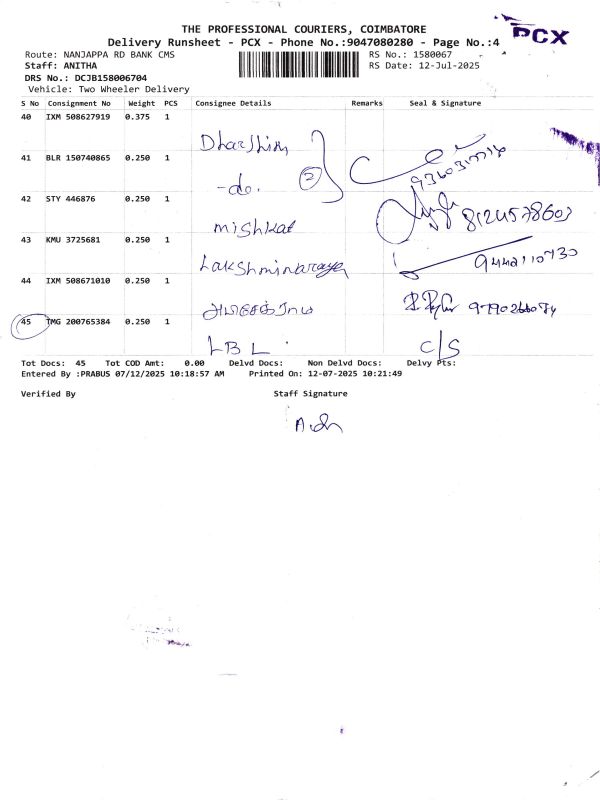 THE PROFESSIONAL COURIERS, COIMBATORE
PCX
Delivery Runsheet - PCX - Phone No.:9047080280 - Page No.:4
Route: NANJAPPA RD BANK CMS RS No.: 1580067
Staff: ANITHA RS Date: 12-Jul-2025
DRS No.: DCJB158006704
Vehicle: Two Wheeler Delivery
S No Consignment No Weight PCS Consignee Details Remarks Seal & Signature
40 IXM 508627919 0.375 1
Dharshini
41 BLR 150740865 0.250 1
-do. 2
42 STY 446876 0.250 1
mishkat 8124578603
43 KMU 3725681 0.250 1
Lakshminaraya 9442110730
44 IXM 508671010 0.250 1
45 TMG 200765384 0.250 1
LBL C/S
Tot Docs: 45 Tot COD Amt: 0.00 Delvd Docs: Non Delvd Docs: Delvy Pts:
Entered By :PRABUS 07/12/2025 10:18:57 AM Printed On: 12-07-2025 10:21:49
Verified By Staff Signature